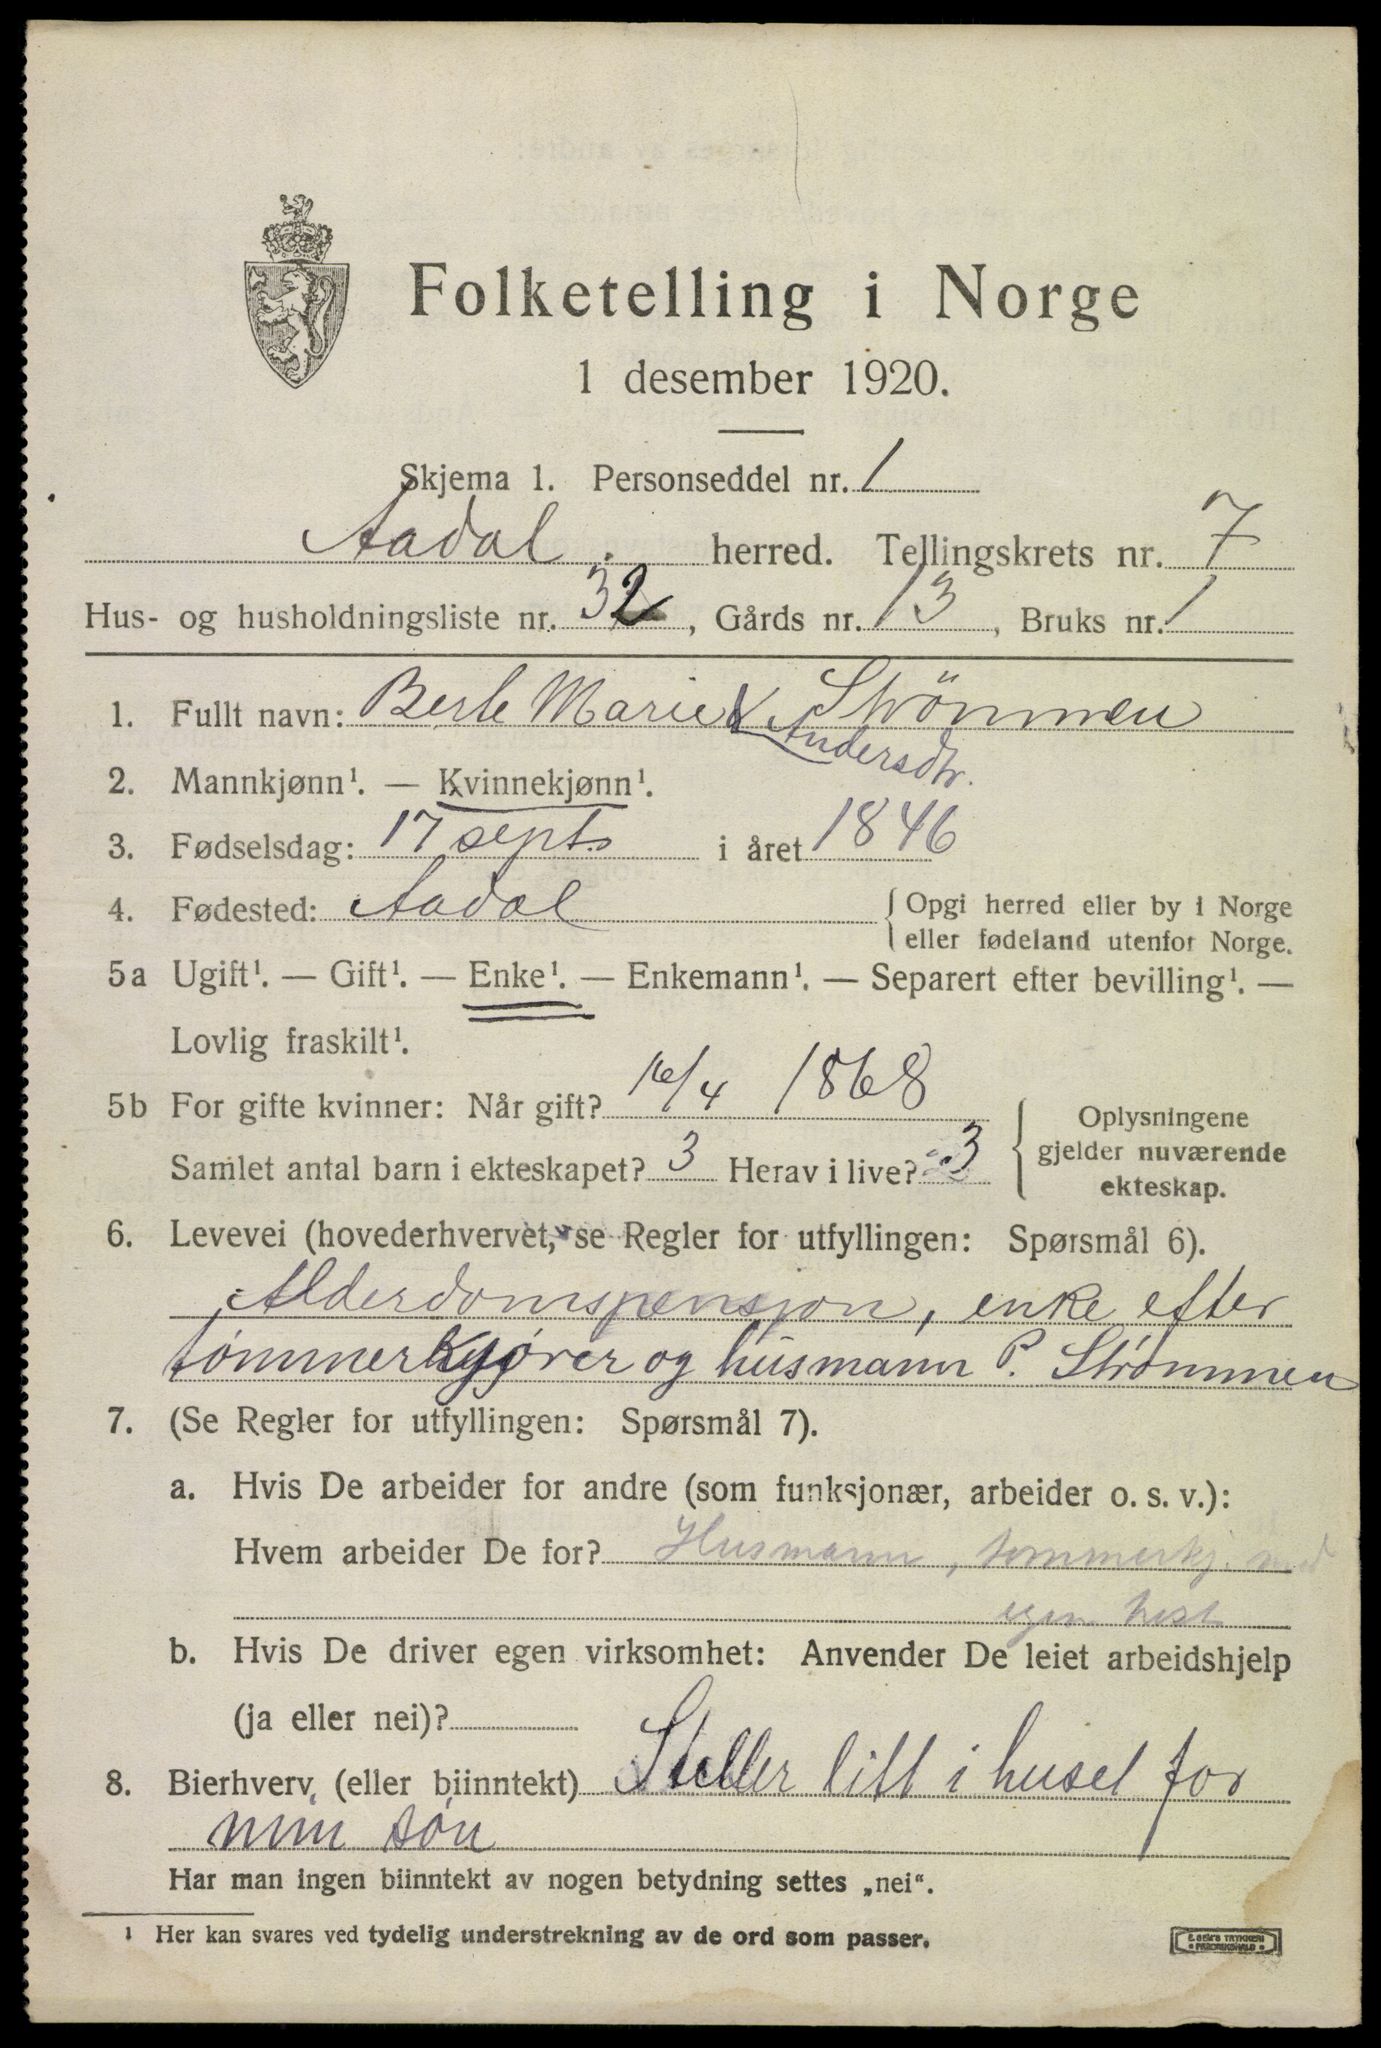 Folketelling i Norge
1 desember 1920.
Skjema 1. Personseddel nr. 1
Aadal herred. Tellingskrets nr. 7
Hus- og husholdningsliste nr. 32, Gårds nr. 13, Bruks nr. 1
1. Fullt navn: Berte Marie Strömmen
Andersdtr.
2. Mannkjønn¹. — Kvinnekjønn¹.
3. Fødselsdag: 17 sept. i året 1846
4. Fødested: Aadal { Opgi herred eller by i Norge
eller fødeland utenfor Norge.
5a Ugift¹. — Gift¹. — Enke¹. — Enkemann¹. — Separert efter bevilling¹. —
Lovlig fraskilt¹.
5b For gifte kvinner: Når gift? 16/4 1868
Samlet antal barn i ekteskapet? 3 Herav i live? 3
Oplysningene
gjelder nuværende
ekteskap.
6. Levevei (hovederhvervet, se Regler for utfyllingen: Spørsmål 6).
Alderdomspensjon, enke efter
tömmerkjörer og husmann P. Strömmen
7. (Se Regler for utfyllingen: Spørsmål 7).
a. Hvis De arbeider for andre (som funksjonær, arbeider o. s. v.):
Hvem arbeider De for? Husmann, tømmerkj. med
egen hest
b. Hvis De driver egen virksomhet: Anvender De leiet arbeidshjelp
(ja eller nei)?
8. Bierhverv (eller biinntekt) Steller litt i huset for
min sön
Har man ingen biinntekt av nogen betydning settes „nei“.
¹ Her kan svares ved tydelig understrekning av de ord som passer.
E. SEM'S TRYKKERI
FREDRIKSHALD